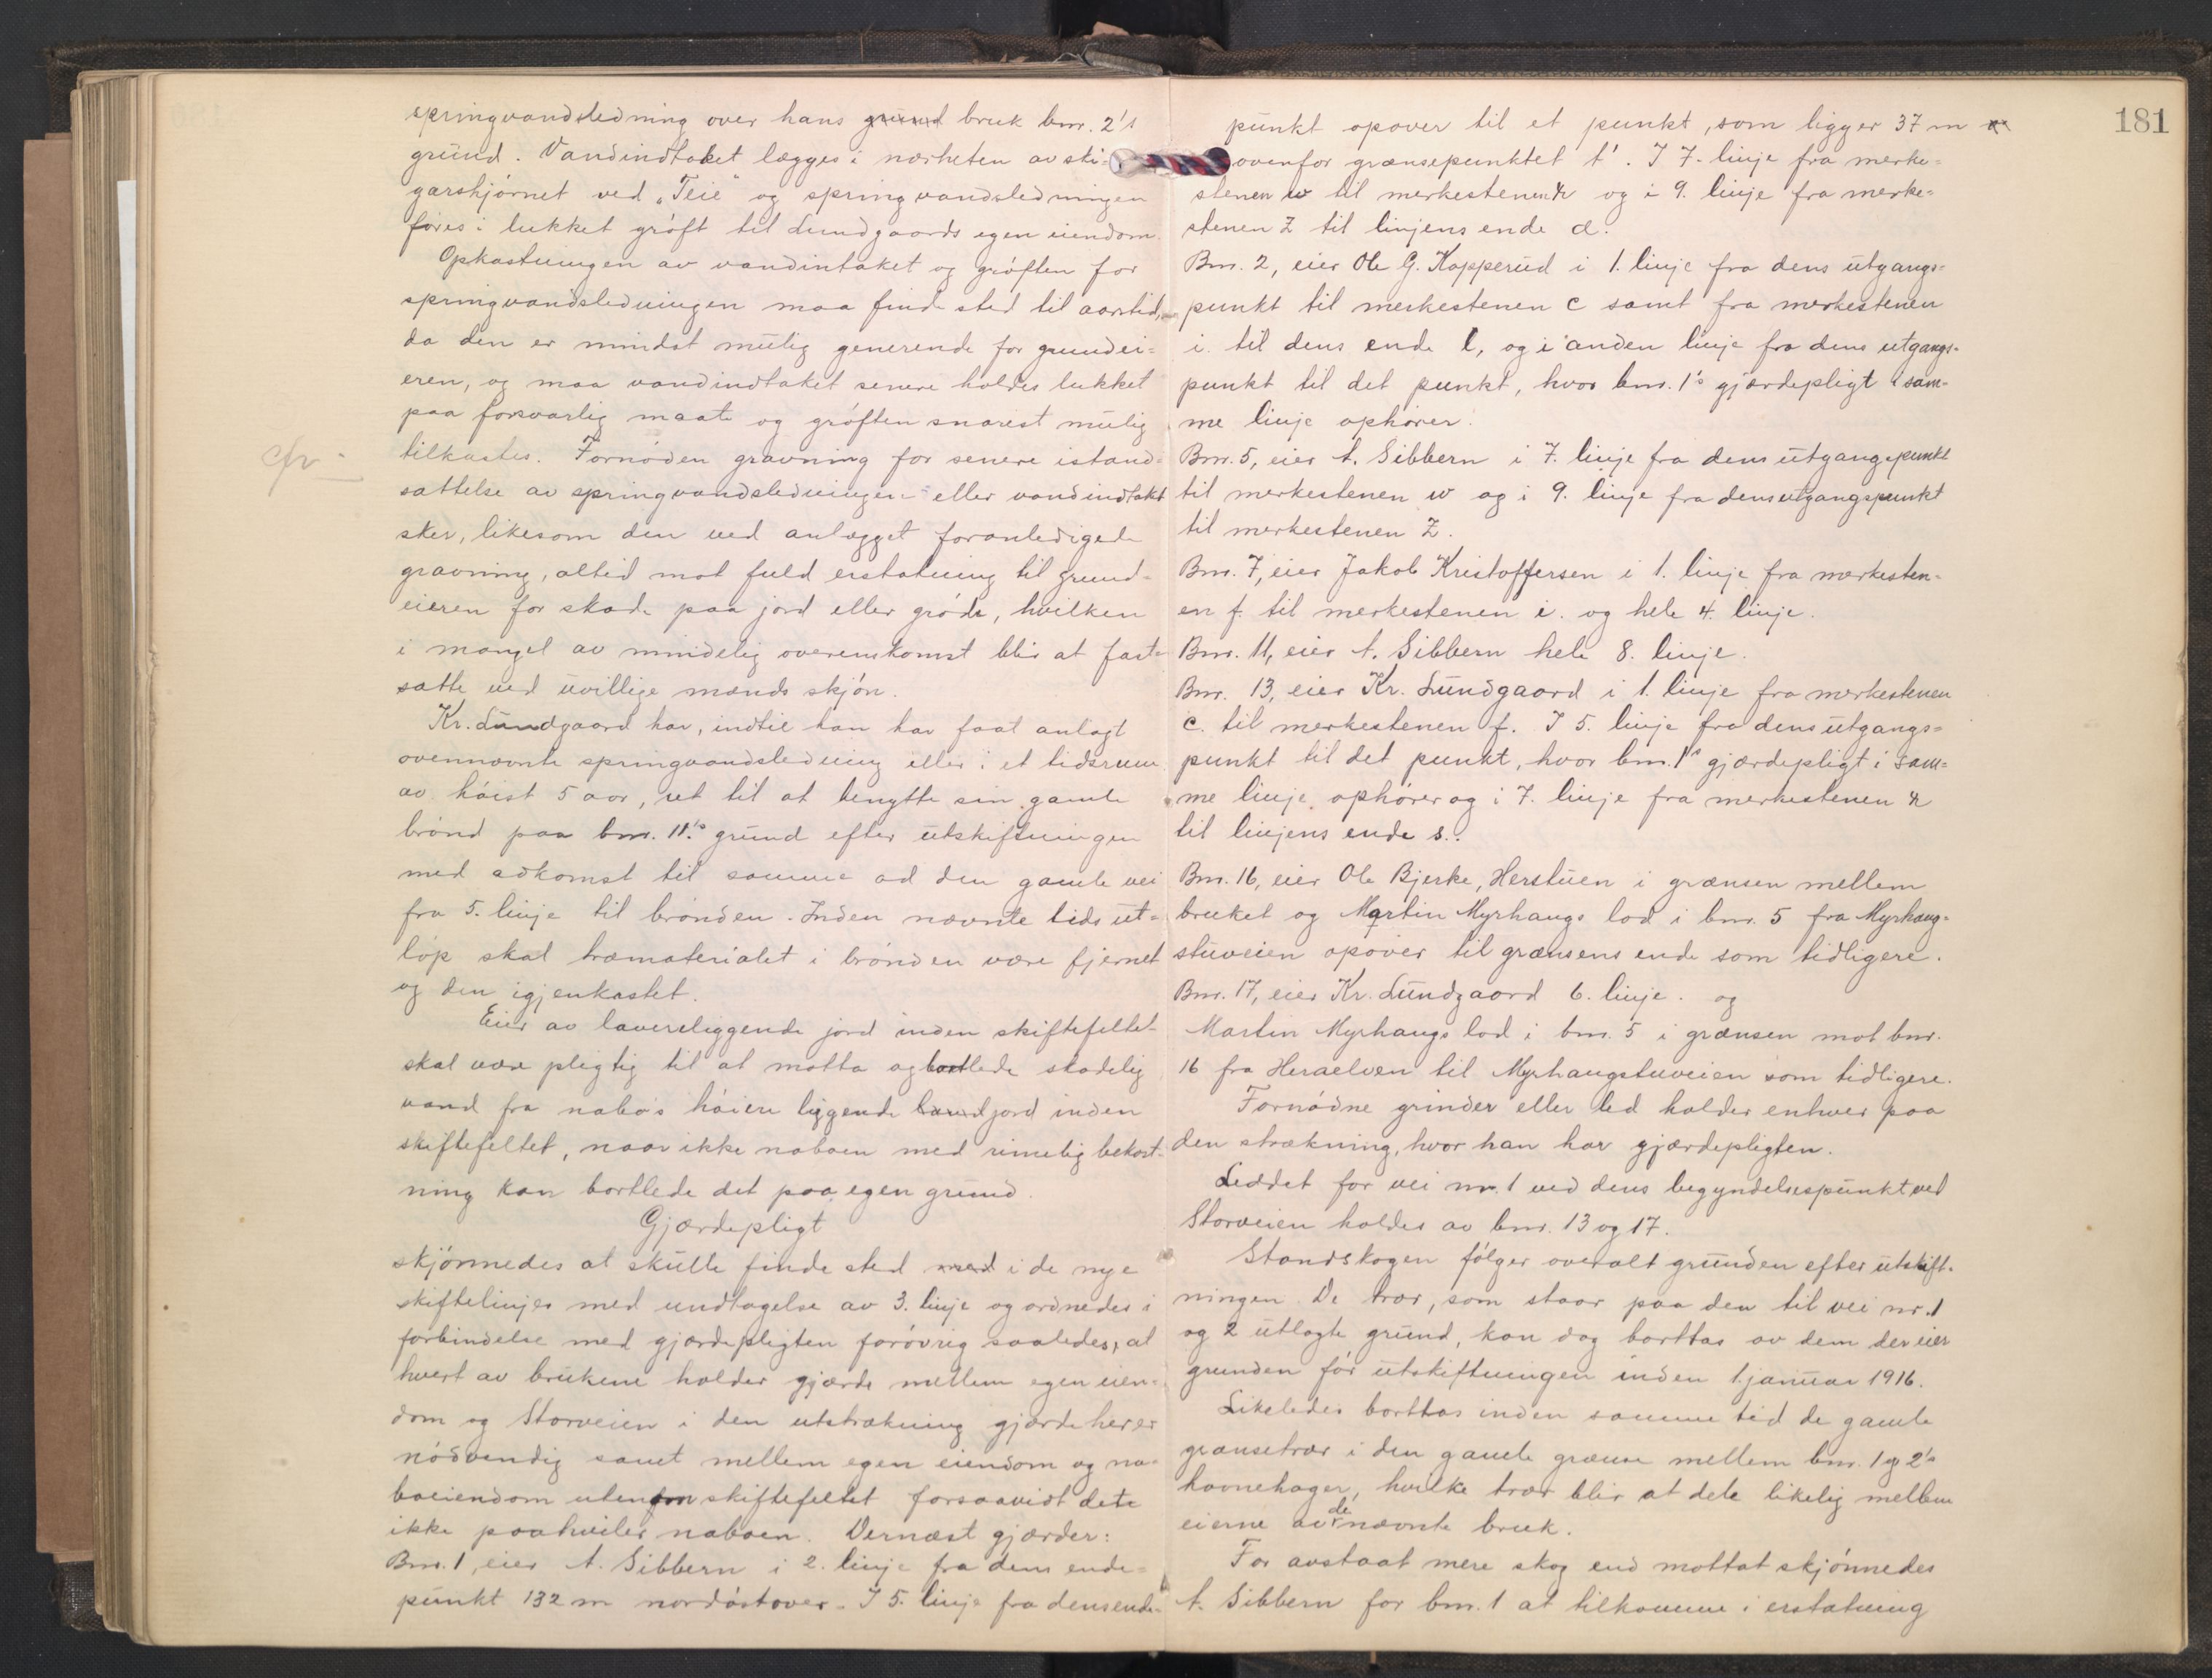 springvandsledning over hans grund bruk bnr. 2's
grund. Vandindtaket lægges i nærheten av ski-
garshjørnet ved "Teie" og springvandsledningen
føres i lukket grøft til Lundgaards egen eiendom.
Opkastningen av vandintaket og grøften for
springvandsledningen maa finde sted til aarstid,
da den er mindst mulig generende for grundei-
eren, og maa vandindtaket senere holdes lukket
paa forsvarlig maate og grøften snarest mulig
cfr.
tilkastes. Fornøden gravning for senere istand-
sættelse av springvandsledningen eller vandindtaket
sker, likesom den ved anlægget foranledigede
gravning, altid mot fuld erstatning til grund-
eieren for skade paa jord eller grøde, hvilken
i mangel av mindelig overenskomst blir at fast-
sætte ved uvillige mænds skjøn.
Kr. Lundgaard har, indtil han har faat anlagt
ovennævnte springvandsledning eller i et tidsrum
av høist 5 aar, ret til at benytte sin gamle
brønd paa bnr. 11's grund efter utskiftningen
med adkomst til samme ad den gamle vei
fra 5. linje til brønden. Inden nævnte tids ut-
løp skal træmaterialet i brønden være fjernet
og den igjenkastet.
Eier av lavereliggende jord inden skiftefeltet
skal være pligtig til at motta og bortlede skadelig
vand fra nabo's høiere liggende land jord inden
skiftefeltet, naar ikke naboen med rimelig bekost-
ning kan bortlede det paa egen grund.
Gjærdepligt
skjønnedes at skulle finde sted med i de nye
skiftelinjer med undtagelse av 3. linje og ordnedes i
forbindelse med gjærdepligten forøvrig saaledes, at
hvert av brukene holder gjærde mellem egen eien-
dom og Storveien i den utstrækning gjærde her er
nødvendig samt mellem egen eiendom og na-
boeiendom utenfor skiftefeltet forsaavidt dette
ikke paahviler naboen. Dernæst gjærder:
Bnr. 1, eier A. Sibbern i 2. linje fra dens ende-
punkt 132 m nordøstover. I 5. linje fra dens ende-
181
punkt opover til et punkt, som ligger 37 m
ovenfor grænsepunktet t'. I 7. linje fra merke-
stenen w til merkestenen x og i 9. linje fra merke-
stenen z til linjens ende d.
Bnr. 2, eier Ole G. Kopperud i 1. linje fra dens utgangs-
punkt til merkestenen c samt fra merkestenen
i. til dens ende l, og i anden linje fra dens utgangs-
punkt til det punkt, hvor bnr. 1's gjærdepligt i sam-
me linje ophører.
Bnr. 5, eier A. Sibbern i 7. linje fra dens utgangspunkt
til merkestenen w og i 9. linje fra dens utgangspunkt
til merkestenen z.
Bnr. 7, eier Jakob Kristoffersen i 1. linje fra merkesten-
en f. til merkestenen i. og hele 4. linje.
Bnr. 11, eier A. Sibbern hele 8. linje.
Bnr. 13, eier Kr. Lundgaard i 1. linje fra merkestenen
c. til merkestenen f. I 5. linje fra dens utgangs-
punkt til det punkt, hvor bnr. 1's gjærdepligt i sam-
me linje ophører og i 7. linje fra merkestenen x
til linjens ende s.
Bnr. 16, eier Ole Bjerke, Herstuen i grænsen mellem
bruket og Martin Myrhaugs lod i bnr. 5 fra Myrhaug-
stuveien opover til grænsens ende som tidligere.
Bnr. 17, eier Kr. Lundgaard 6. linje. og
Martin Myrhaugs lod i bnr. 5 i grænsen mot bnr.
16 fra Heraelven til Myrhaugstuveien som tidligere.
Fornødne grinder eller led holder enhver paa
den strækning, hvor han har gjærdepligten.
Leddet for vei nr. 1 ved dens begyndelsespunkt ved
Storveien holdes av bnr. 13 og 17.
Standskogen følger overalt grunden efter utskift-
ningen. De trær, som staar paa den til vei nr. 1
og 2 utlagte grund, kan dog borttas av dem der eier
grunden før utskiftningen inden 1 januar 1916.
Likeledes borttas inden samme tid de gamle
grænsetrær i den gamle grænse mellem bnr. 1 og 2's
havnehager, hvilke trær blir at dele likelig mellem
eierne av de nævnte bruk.
For avstaat mere skog end mottat skjønnedes
A. Sibbern for bnr. 1 at tilkomme i erstatning